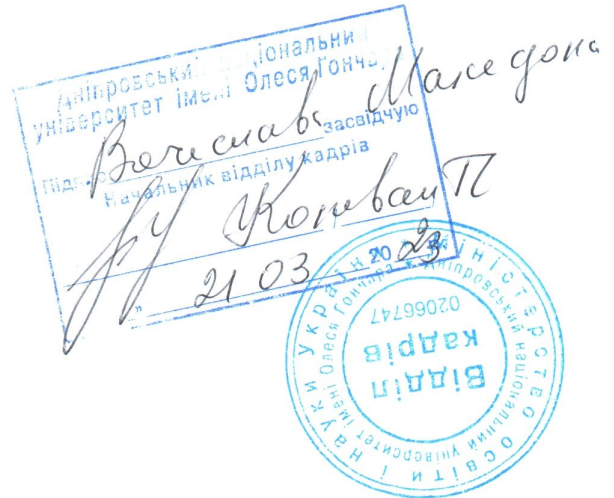 Дніпровський національний
університет імені Олеся Гончара
Підпис Вячеслав Македона засвідчую
Начальник відділу кадрів
21 03 2023
Міністерство освіти і науки України
Дніпровський національний університет імені Олеся Гончара
02066747
Відділ
кадрів